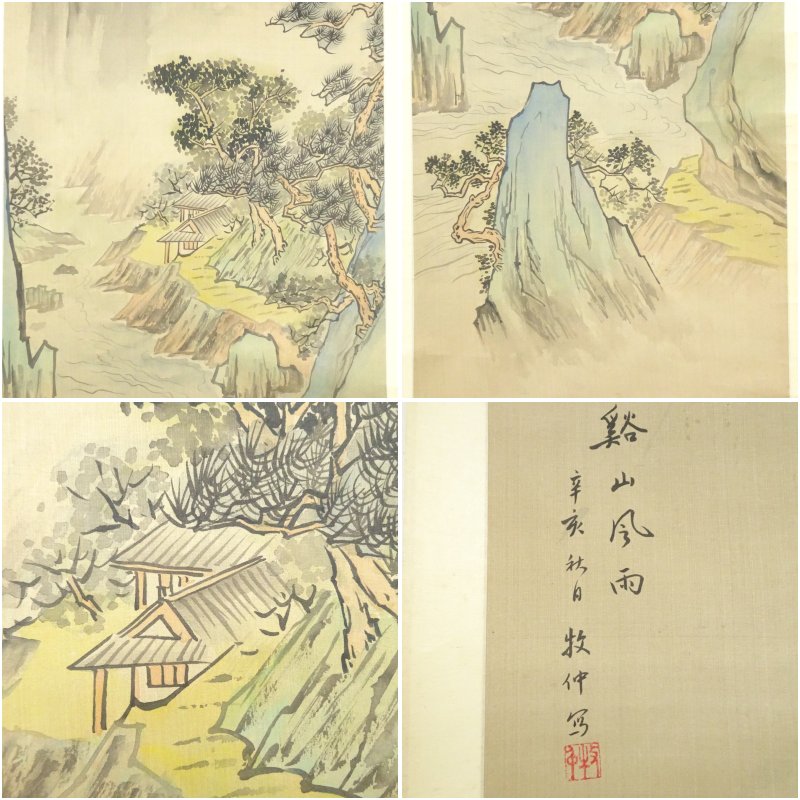 谿山風雨
辛亥秋日 牧仲写
牧仲